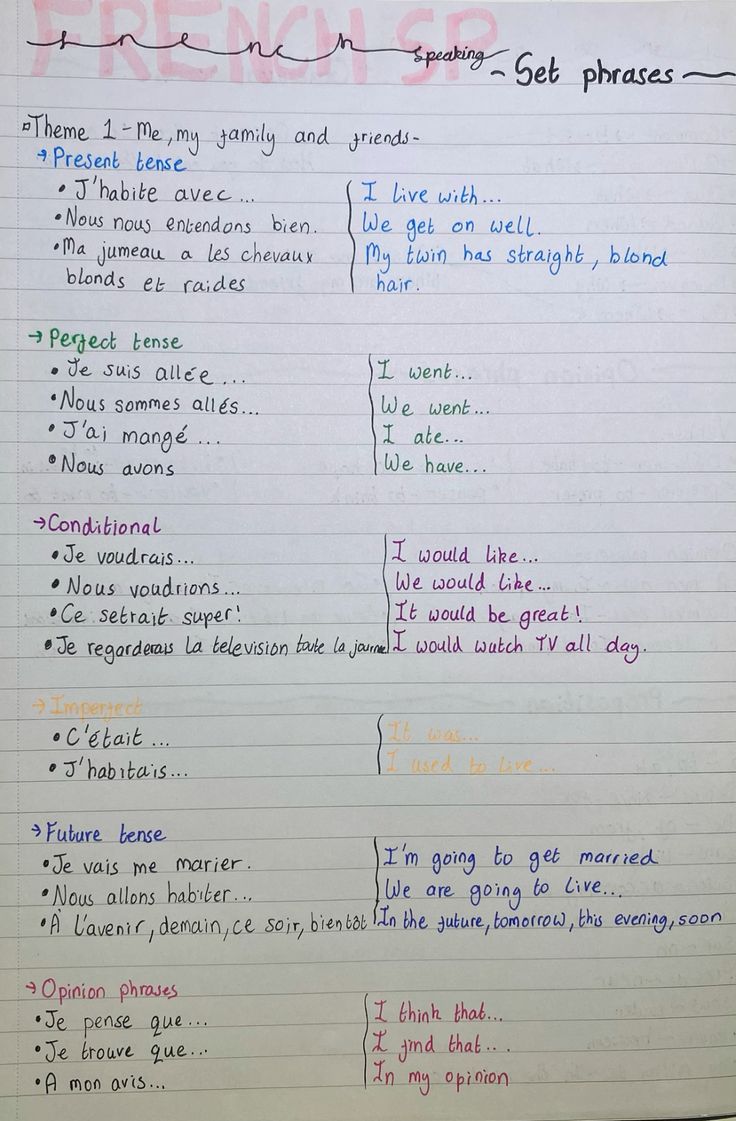 FRENCH SP
french speaking - Set phrases -
Theme 1 - Me, my family and friends -
→ Present tense
• J'habite avec... I live with...
• Nous nous entendons bien. We get on well.
• Ma jumeau a les chevaux My twin has straight, blond
blonds et raides hair.
→ Perfect tense
• Je suis allée... I went...
• Nous sommes allés... We went...
• J'ai mangé... I ate...
• Nous avons We have...
→ Conditional
• Je voudrais... I would like...
• Nous voudrions... We would like...
• Ce setrait super! It would be great!
• Je regarderais la television toute la journee I would watch TV all day.
→ Imperfect
• C'était... It was...
• J'habitais... I used to live...
→ Future tense
• Je vais me marier. I'm going to get married
• Nous allons habiter... We are going to live...
• À l'avenir, demain, ce soir, bientôt In the future, tomorrow, this evening, soon
→ Opinion phrases
• Je pense que... I think that...
• Je trouve que... I find that...
• A mon avis... In my opinion